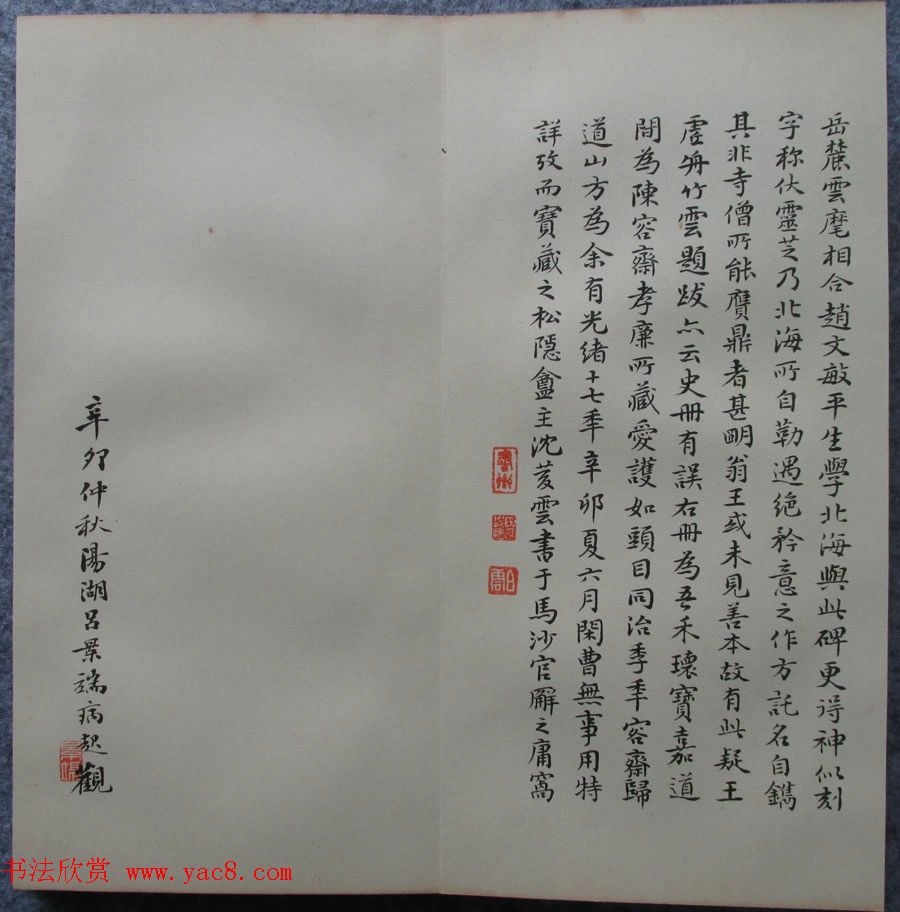 岳麓雲麾相合趙文敏平生學北海與此碑更得神似刻
字称伏靈芝乃北海所自勒遇絶矜意之作方託名自鐫
其非寺僧所能贋鼎者甚明翁王或未見善本故有此疑王
虚舟竹雲題跋亦云史冊有誤右冊為吾禾瓌寶嘉道
間為陳容齋孝廉所藏愛護如頭目同治季年容齋歸
道山方為余有光緒十七年辛卯夏六月閑曹無事用特
詳攷而寶藏之松隱盦主沈蒙雲書于馬沙官廨之庸窩
辛卯仲秋陽湖呂景端病起觀
书法欣赏 www.yac8.com